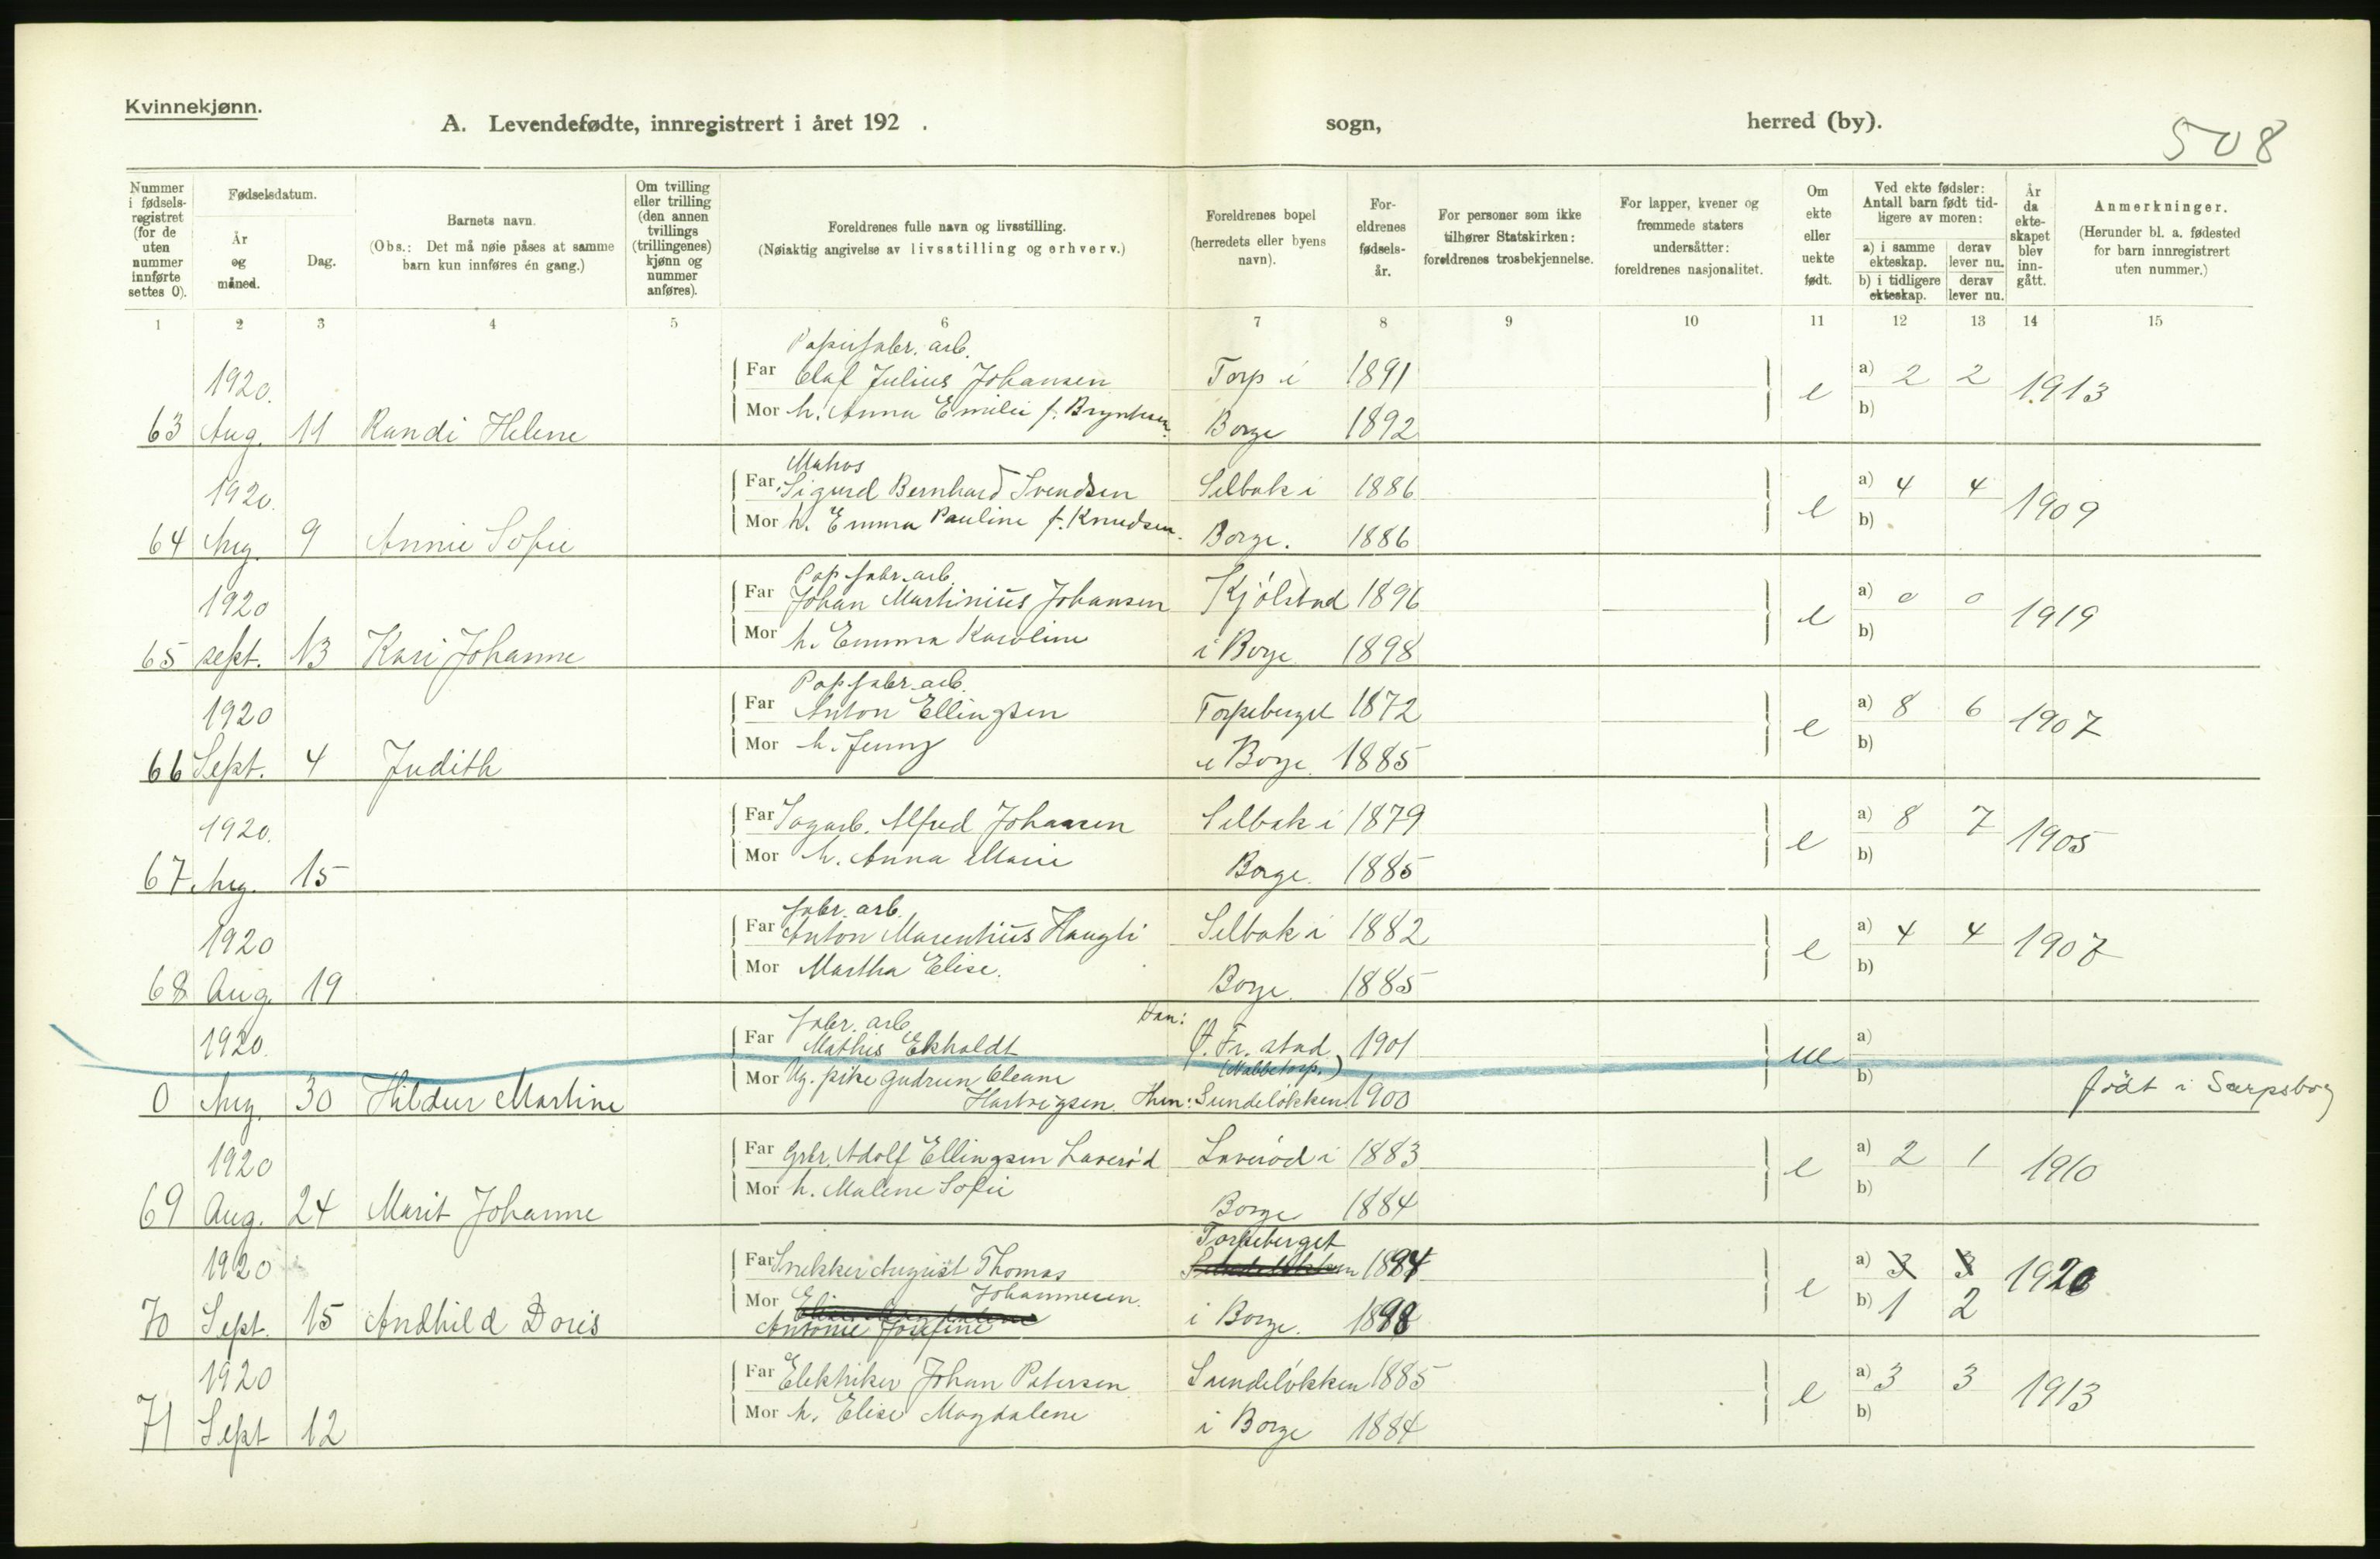 Kvinnekjønn.
A. Levendefødte, innregistrert i året 192 . sogn, herred (by).
508
Nummer i fødselsregistret (for de uten nummer innførte settes 0).
Fødselsdatum.
År og måned.
Dag.
Barnets navn.
(Obs.: Det må nøie påses at samme barn kun innføres én gang.)
Om tvilling eller trilling (den annen tvillings (trillingenes) kjønn og nummer anføres).
Foreldrenes fulle navn og livsstilling.
(Nøiaktig angivelse av livsstilling og erhverv.)
Foreldrenes bopel (herredets eller byens navn).
Foreldrenes fødselsår.
For personer som ikke tilhører Statskirken: foreldrenes trosbekjennelse.
For lapper, kvener og fremmede staters undersåtter: foreldrenes nasjonalitet.
Om ekte eller uekte født.
Ved ekte fødsler: Antall barn født tidligere av moren:
a) i samme ekteskap. derav lever nu.
b) i tidligere ekteskap. derav lever nu.
År da ekteskapet blev inngått.
Anmerkninger.
(Herunder bl. a. fødested for barn innregistrert uten nummer.)
1 2 3 4 5 6 7 8 9 10 11 12 13 14 15
Papirfabr. arb.
1920. Far Olaf Julius Johansen Torp i 1891 e a) 2 2 1913
Mor h. Anna Emilie f. Brynhsen. b)
63 Aug. 11 Randi Helene Borge 1892
Matros
1920. Far Sigurd Bernhard Svendsen Selbak i 1886 e a) 4 4 1909
Mor h. Emma Pauline f. Knudsen. b)
64 Aug. 9 Annie Sofie Borge. 1886
Pap. fabr. arb.
1920 Far Johan Martinius Johansen Kjölstad 1896 e a) 0 0 1919
Mor h. Emma Karoline b)
65 sept. 13 Kari Johanne i Borge 1898
Pap fabr. arb.
1920 Far Anton Ellingsen Torpeberget 1872 e a) 8 6 1907
Mor h. Jenny b)
66 Sept. 4 Judith i Borge. 1885
1920. Far Sagarb. Alfred Johansen Selbak i 1879 e a) 8 7 1905
Mor h. Anna Marie b)
67 Aug. 15 Borge. 1885
fabr. arb.
1920 Far Anton Marentius Haugli Selbak i 1882 e a) 4 4 1907
Mor Martha Elise. b)
68 Aug. 19 Borge. 1885
fabr. arb. Han:
1920. Far Mathis Ekholdt Ø. Fr. stad 1901 ue a)
(Nabbetorp.)
Mor Ug. pike Gudrun Oleane b)
0 Aug. 30 Hildur Martine Hartvigsen. Hun: Sundelökken 1900 født i Sarpsborg
1920 Far Grbr. Adolf Ellingsen Laveröd Laveröd i 1883 e a) 2 1 1910
Mor h. Malene Sofie b)
69 Aug. 24 Marit Johanne Borge 1884
Torpeberget
1920 Far Snekker August Thomas Sundelökken 1894 e a) 3 3 1920
Mor Johannesen. b) 1 2
70 Sept. 15 Andhild Doris Antonie Josefine i Borge. 1898
1920 Far Elektriker Johan Petersen Sundelökken 1885 e a) 3 3 1913
Mor h. Elise Magdalene b)
71 Sept 12 i Borge 1884